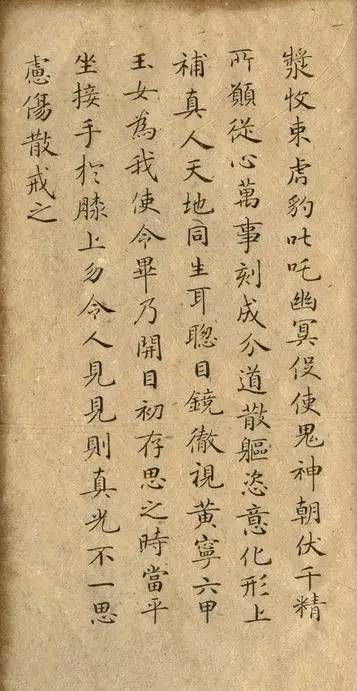 漿收束虎豹叱吒幽冥促使鬼神朝伏千精
所願從心萬事剋成分道散軀恣意化形上
補真人天地同生耳聰目鏡徹視黃寧六甲
玉女為我使令畢乃開目初存思之時當平
坐接手於膝上勿令人見見則真光不一思
慮傷散戒之